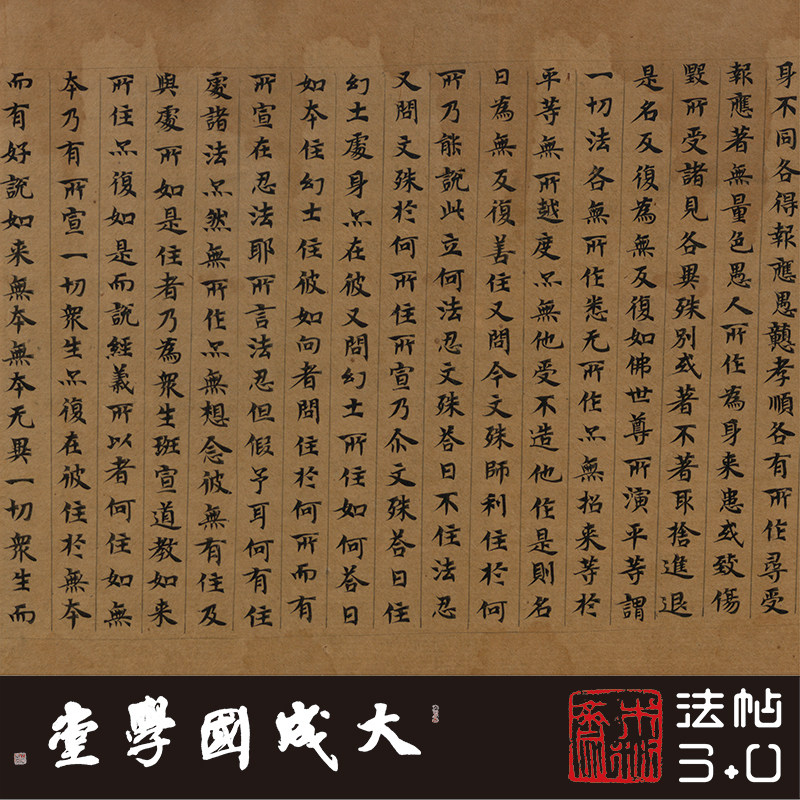 身不同各得報應愚戇孝順各有所作尋受
報應著無量色愚人所作為身来患或致傷
毀所受諸見各異殊別或著不著取捨進退
是名反復為無反復如佛世尊所演平等謂
一切法各無所作悉无所作亦無招来等於
平等無所越度亦無他受不造他作是則名
曰為無反復善住又問今文殊師利住於何
所乃能說此立何法忍文殊荅曰不住法忍
又問文殊於何所住所宣乃尒文殊荅曰住
幻土處身亦在彼又問幻士所住如何荅曰
如本住幻士住彼如向者問住於何所而有
所宣在忍法耶所言法忍但假予耳何有住
處諸法亦然無所作亦無想念彼無有住及
與處所如是住者乃為衆生班宣道教如来
所住亦復如是而說經義所以者何住如無
本乃有所宣一切衆生亦復在彼住於無本
而有好說如来無本無本无異一切衆生而
大成國學堂
法帖
3.0